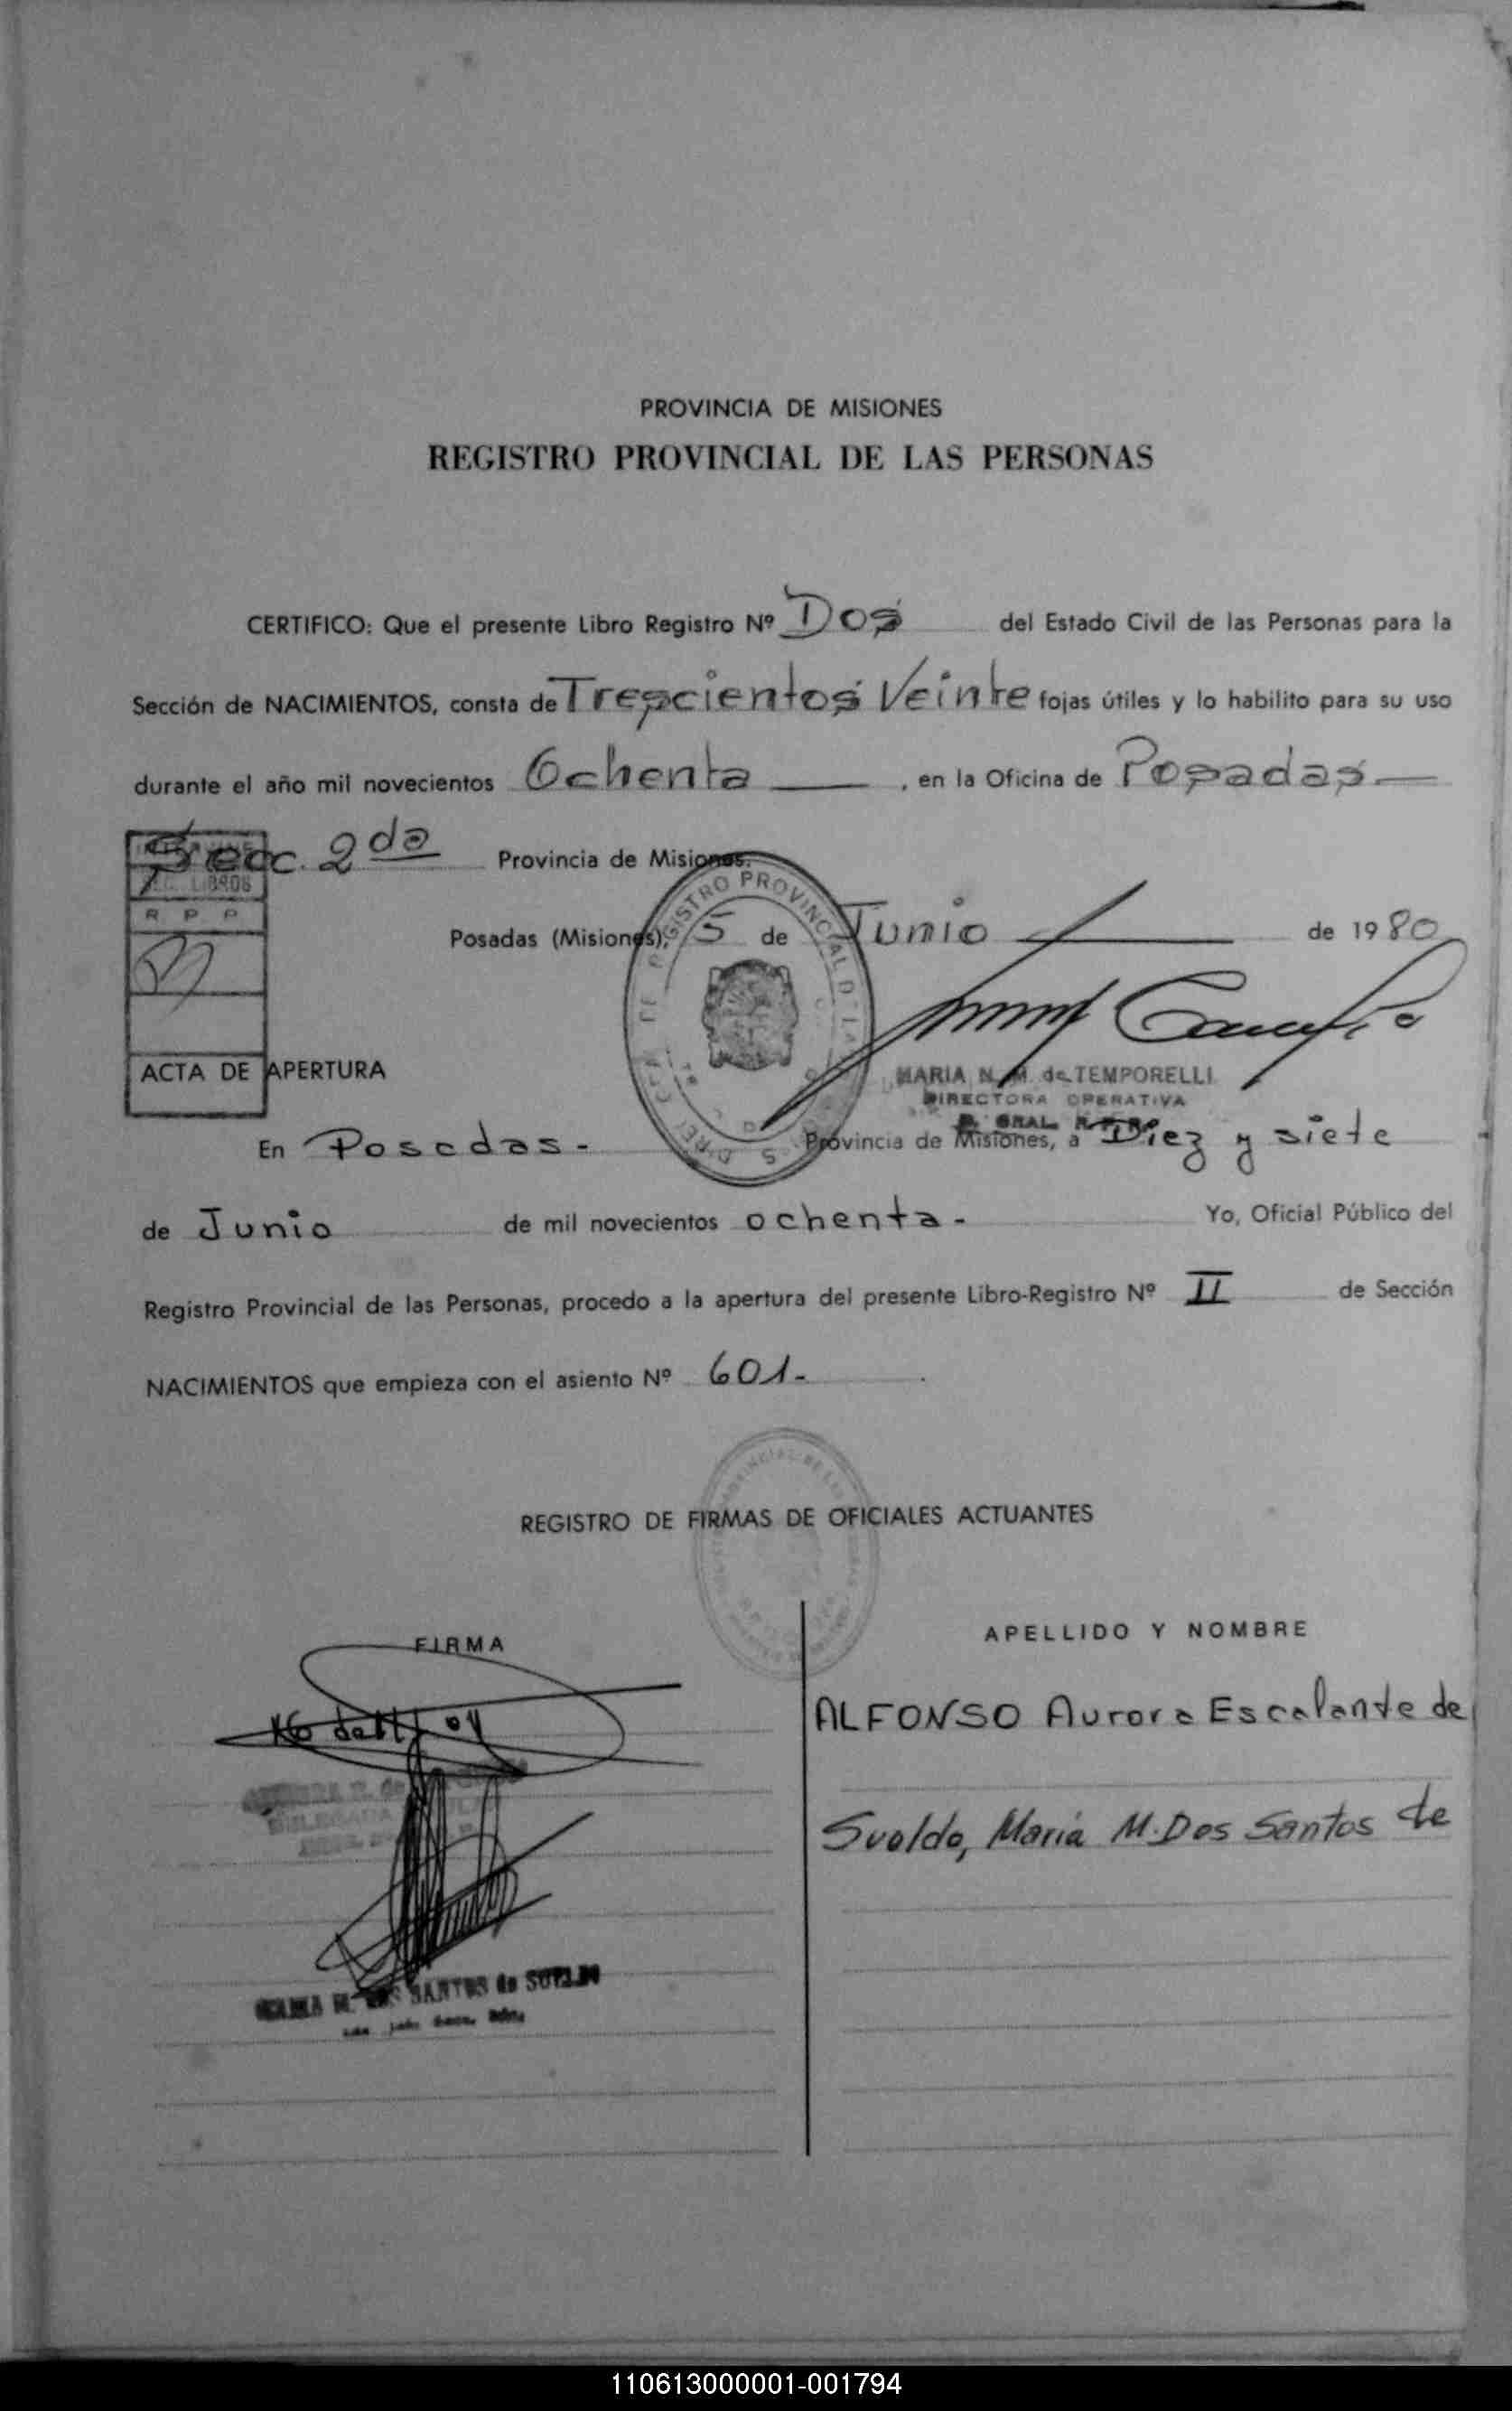 PROVINCIA DE MISIONES
REGISTRO PROVINCIAL DE LAS PERSONAS
CERTIFICO: Que el presente Libro Registro Nº Dos del Estado Civil de las Personas para la
Sección de NACIMIENTOS, consta de Trescientos Veinte fojas útiles y lo habilito para su uso
durante el año mil novecientos Ochenta , en la Oficina de Posadas
Secc. 2da Provincia de Misiones.
LIBROS
R P P
Posadas (Misiones), 5 de Junio de 1980
MARIA N. M. de TEMPORELLI
DIRECTORA OPERATIVA
ACTA DE APERTURA
En Posadas - Provincia de Misiones, a Diez y siete
de Junio de mil novecientos ochenta - Yo, Oficial Público del
Registro Provincial de las Personas, procedo a la apertura del presente Libro-Registro Nº II de Sección
NACIMIENTOS que empieza con el asiento Nº 601.-
REGISTRO DE FIRMAS DE OFICIALES ACTUANTES
FIRMA
APELLIDO Y NOMBRE
ALFONSO Aurora Escalante de
Sueldo, María M. Dos Santos de
SANTOS de SUELDO
110613000001-001794